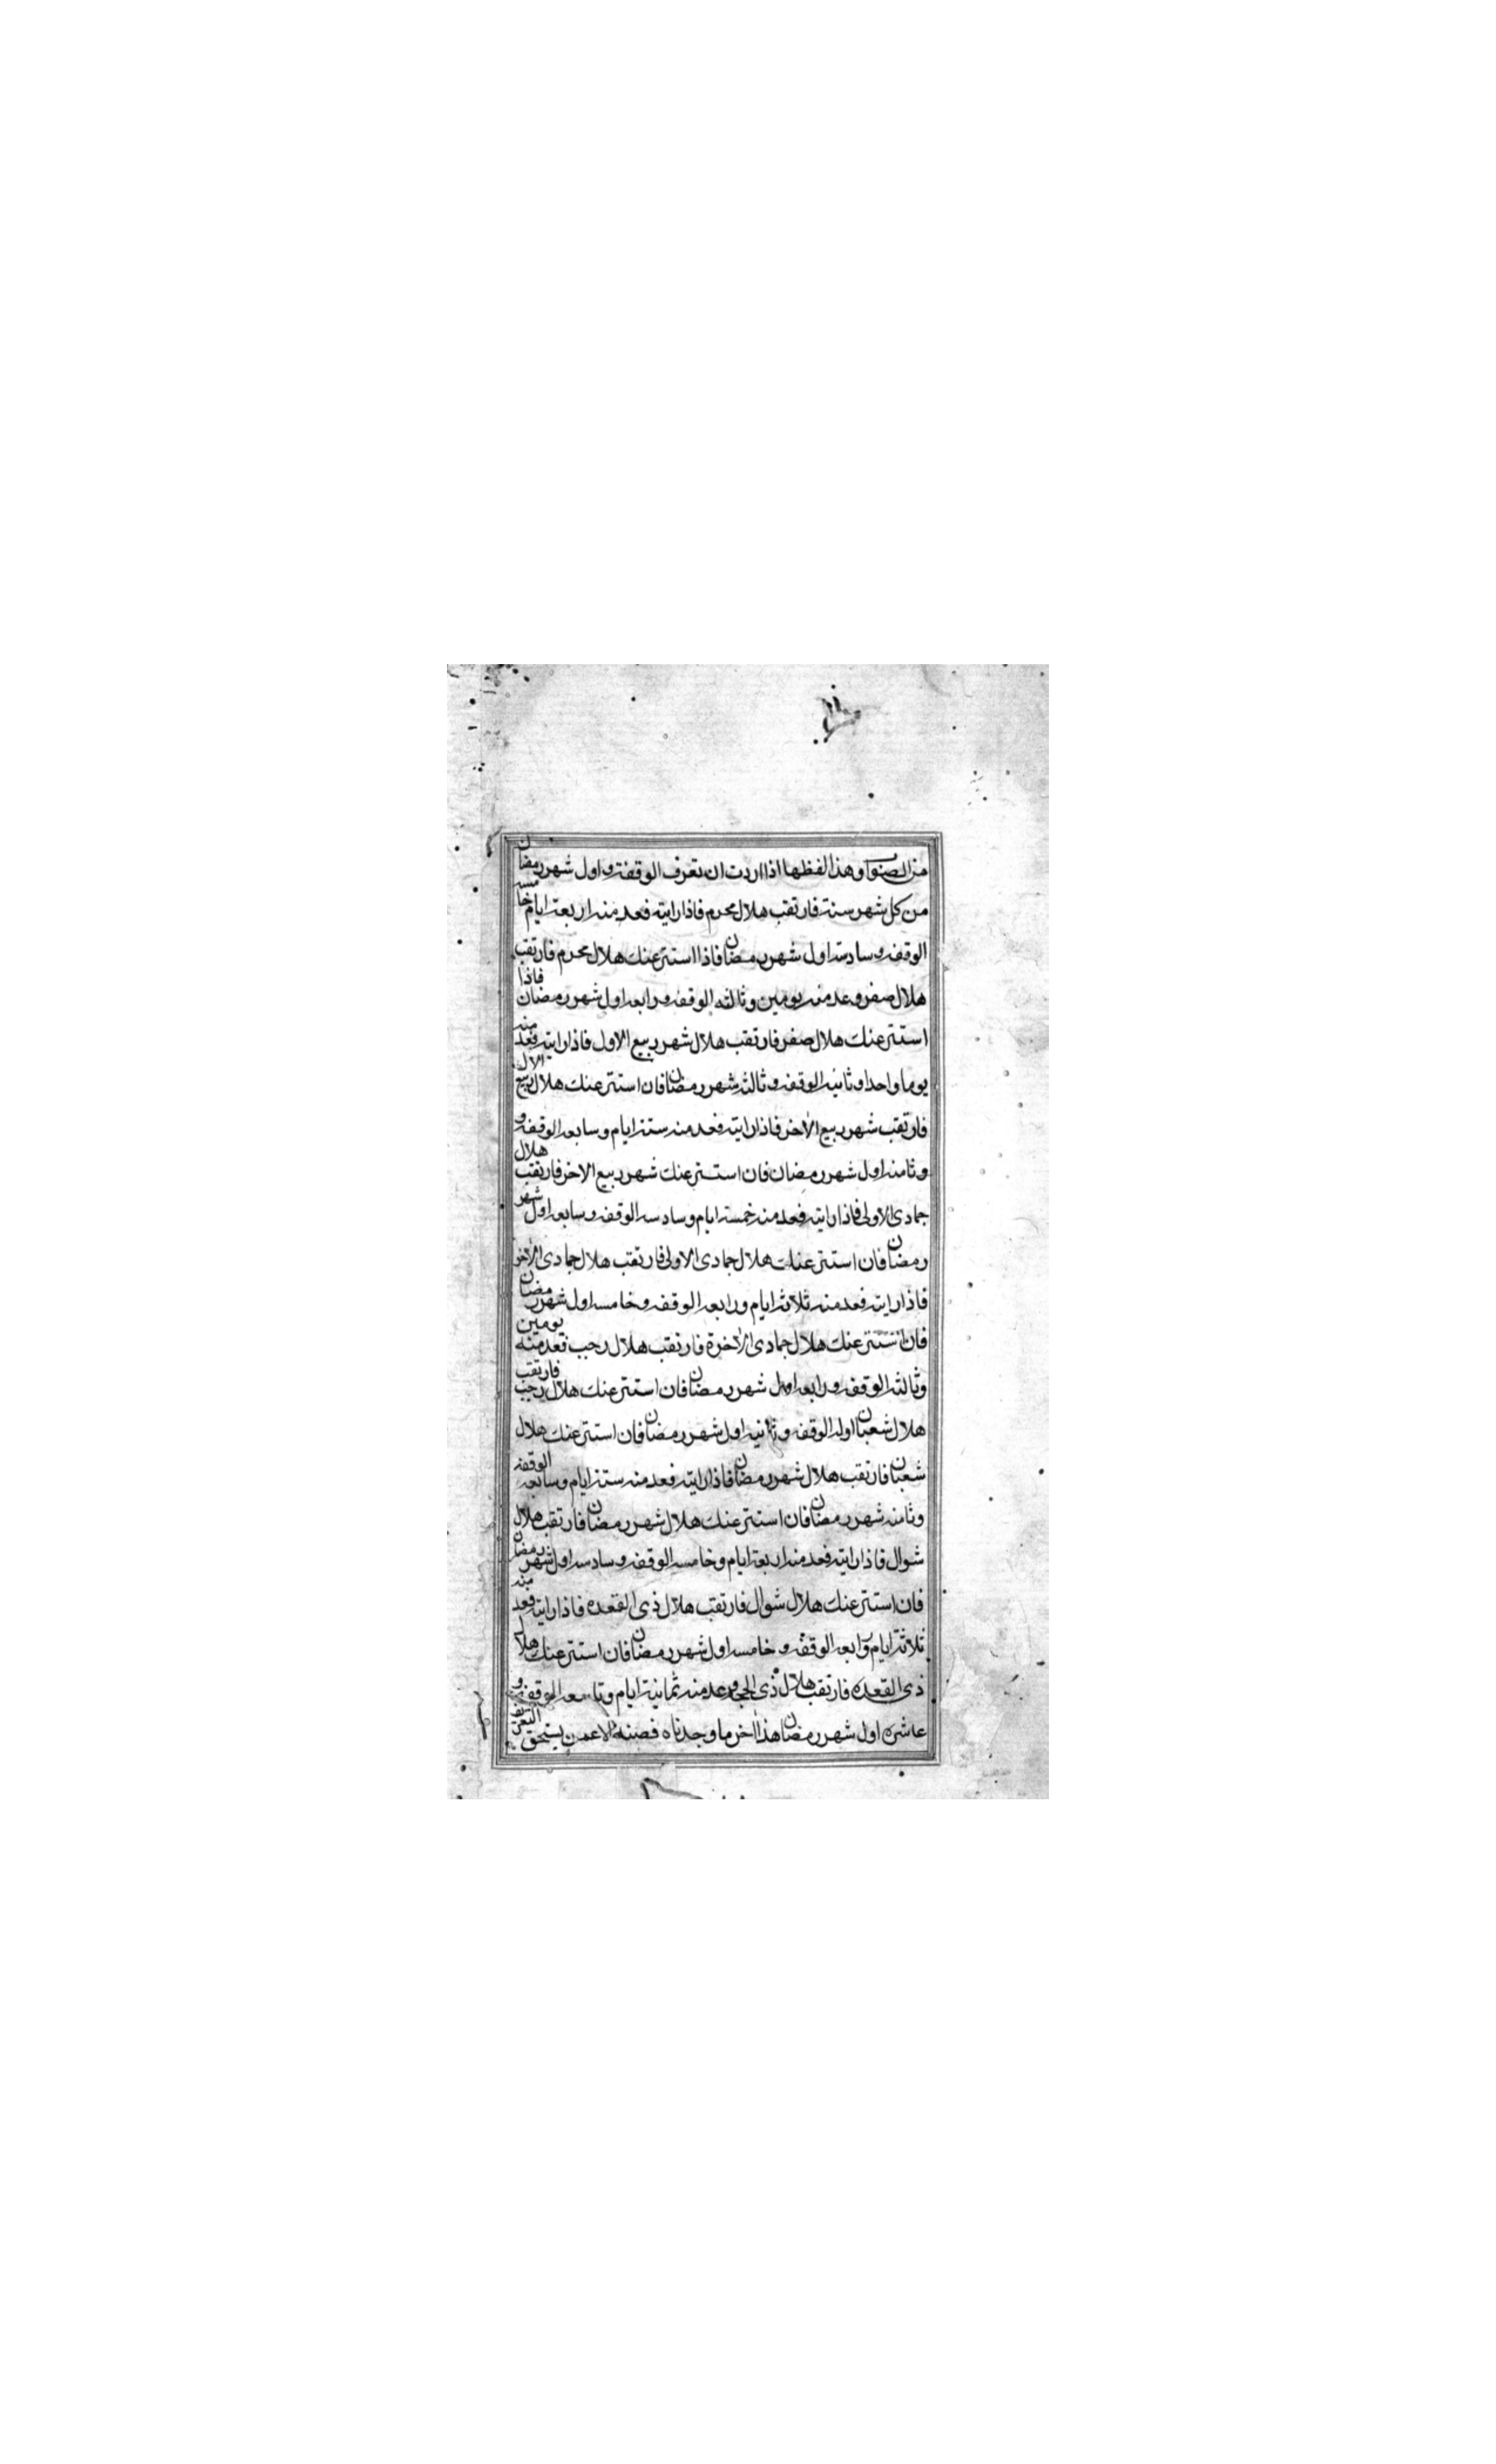 من الصواب وهذا لفظها اذا اردت ان تعرف الوقفة واول شهر رمضان
من كل شهر سنة فارتقب هلال محرم فاذا رايته فعد منه اربعة ايام خامسه
الوقفه وسادسه اول شهر رمضان فاذا استتر عنك هلال محرم فارتقب
هلال صفر وعد منه يومين وثالثه الوقفه ورابعه اول شهر رمضان فاذا
استتر عنك هلال صفر فارتقب هلال شهر ربيع الاول فاذا رايته فعد منه
يوما واحدا وثانيه الوقفه وثالثه شهر رمضان فان استتر عنك هلال ربيع الاول
فارتقب شهر ربيع الاخر فاذا رايته فعد منه ستة ايام وسابعه الوقفه و
وثامنه اول شهر رمضان فان استتر عنك شهر ربيع الاخر فارتقب هلال
جمادى الاولى فاذا رايته فعد منه خمسة ايام وسادسه الوقفه وسابعه اول شهر
رمضان فان استتر عنك هلال جمادى الاولى فارتقب هلال جمادى الاخر
فاذا رايته فعد منه ثلاثة ايام ورابعه الوقفه وخامسه اول شهر رمضان
فان استتر عنك هلال جمادى الاخرة فارتقب هلال رجب فعد منه يومين
وثالثه الوقفه ورابعه اول شهر رمضان فان استتر عنك هلال رجب فارتقب
هلال شعبان اوله الوقفه وثانيه اول شهر رمضان فان استتر عنك هلال
شعبان فارتقب هلال شهر رمضان فاذا رايته فعد منه ستة ايام وسابعه الوقفه
وثامنه شهر رمضان فان استتر عنك هلال شهر رمضان فارتقب هلال
شوال فاذا رايته فعد منه اربعة ايام وخامسه الوقفه وسادسه اول شهر رمضان
فان استتر عنك هلال شوال فارتقب هلال ذى القعده فاذا رايته فعد منه
ثلاثة ايام ورابعه الوقفه وخامسه اول شهر رمضان فان استتر عنك هلال
ذى القعده فارتقب هلال ذى الحجه وعد منه ثمانية ايام وتاسعه الوقفه و
عاشره اول شهر رمضان هذا اخر ما وجدناه فصنه الا عمن يستحق التعريف